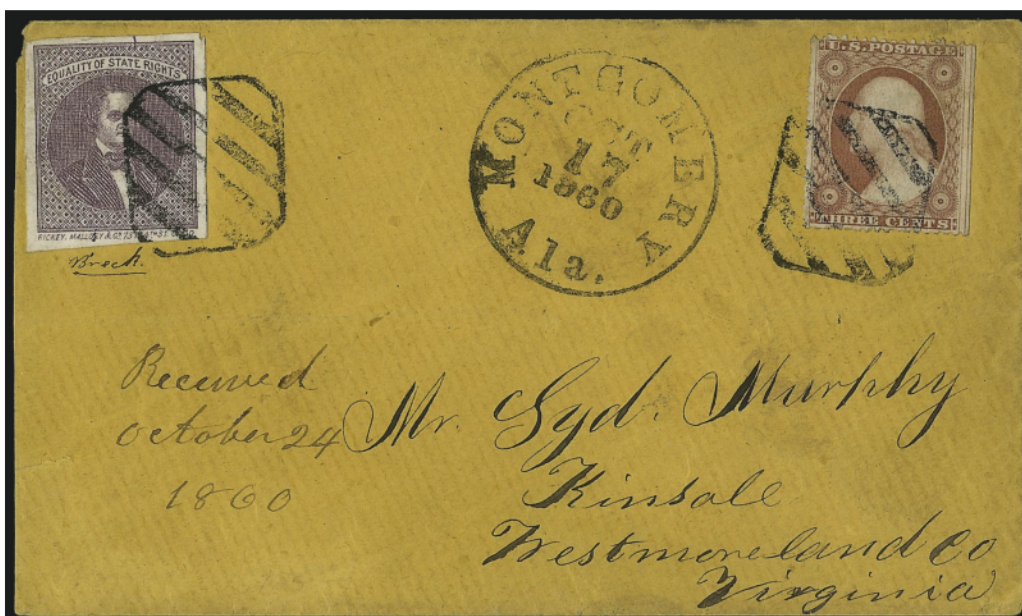 EQUALITY OF STATE RIGHTS
RICKEY, MALLORY & Co
Breck.
MONTGOMERY
OCT
17
1860
Ala.
U.S. POSTAGE
THREE CENTS
Received
October 24
1860
Mr. Syd. Murphy
Kinsale
Westmoreland Co
Virginia